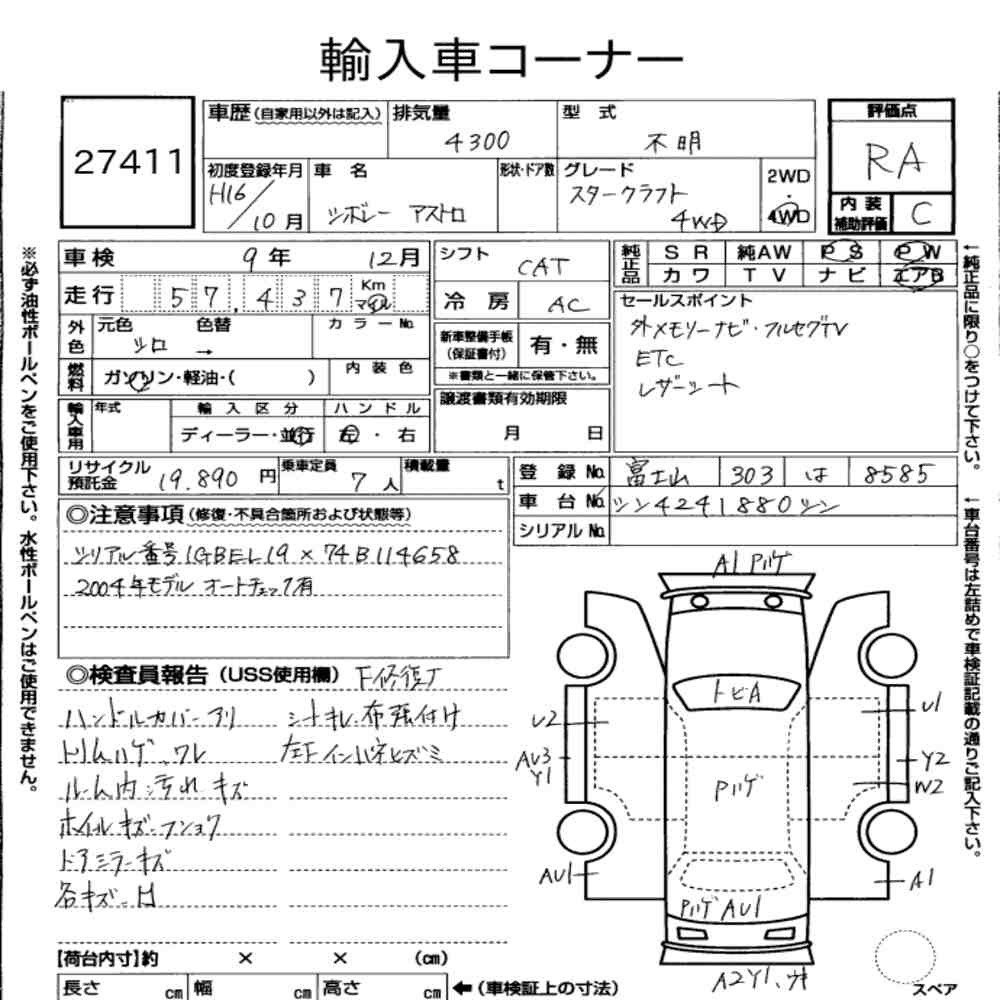 輸入車コーナー
27411
車歴(自家用以外は記入) 排気量 4300 型式 不明
初度登録年月 H16/10月 車名 シボレー アストロ 形状・ドア数 グレード スタークラフト 4WD 2WD・4WD
評価点 RA
内装補助評価 C
車検 9年 12月
走行 57,437 Km マイル
外色 元色 シロ 色替 → カラーNo.
燃料 ガソリン・軽油・( ) 内装色
輸入車用 年式 輸入区分 ディーラー・並行 ハンドル 左・右
シフト CAT
冷房 AC
新車整備手帳(保証書付) 有・無
※書類と一緒に保管下さい。
譲渡書類有効期限 月 日
純正品 SR 純AW PS PW
カワ TV ナビ エアB
セールスポイント
外メモリーナビ・フルセグTV
ETC
レザーシート
リサイクル預託金 19,890円 乗車定員 7人 積載量 t
登録No. 富士山 303 は 8585
車台No. シン4241880シン
シリアルNo.
◎注意事項(修復・不具合箇所および状態等)
シリアル番号 1GBEL19×74B114658
2004年モデル オートチェック有
◎検査員報告(USS使用欄) F修復J
ハンドルカバーアリ シートキレ布張付け
トリムハゲ、ワレ 左Fインパネヒズミ
ルーム内汚れキズ
ホイルキズ・フショク
ドアミラーキズ
各キズ
【荷台内寸】約 × × (cm)
長さ cm 幅 cm 高さ cm ←(車検証上の寸法)
A1 Pハゲ
トビA
U2
U1
AU3
Y1
Y2
W2
Pハゲ
AU1
A1
Pハゲ AU1
A2Y1、サキ
スペア
※必ず油性ボールペンをご使用下さい。水性ボールペンはご使用できません。
←純正品に限り○をつけて下さい。
←車台番号は左詰めで車検証記載の通りご記入下さい。